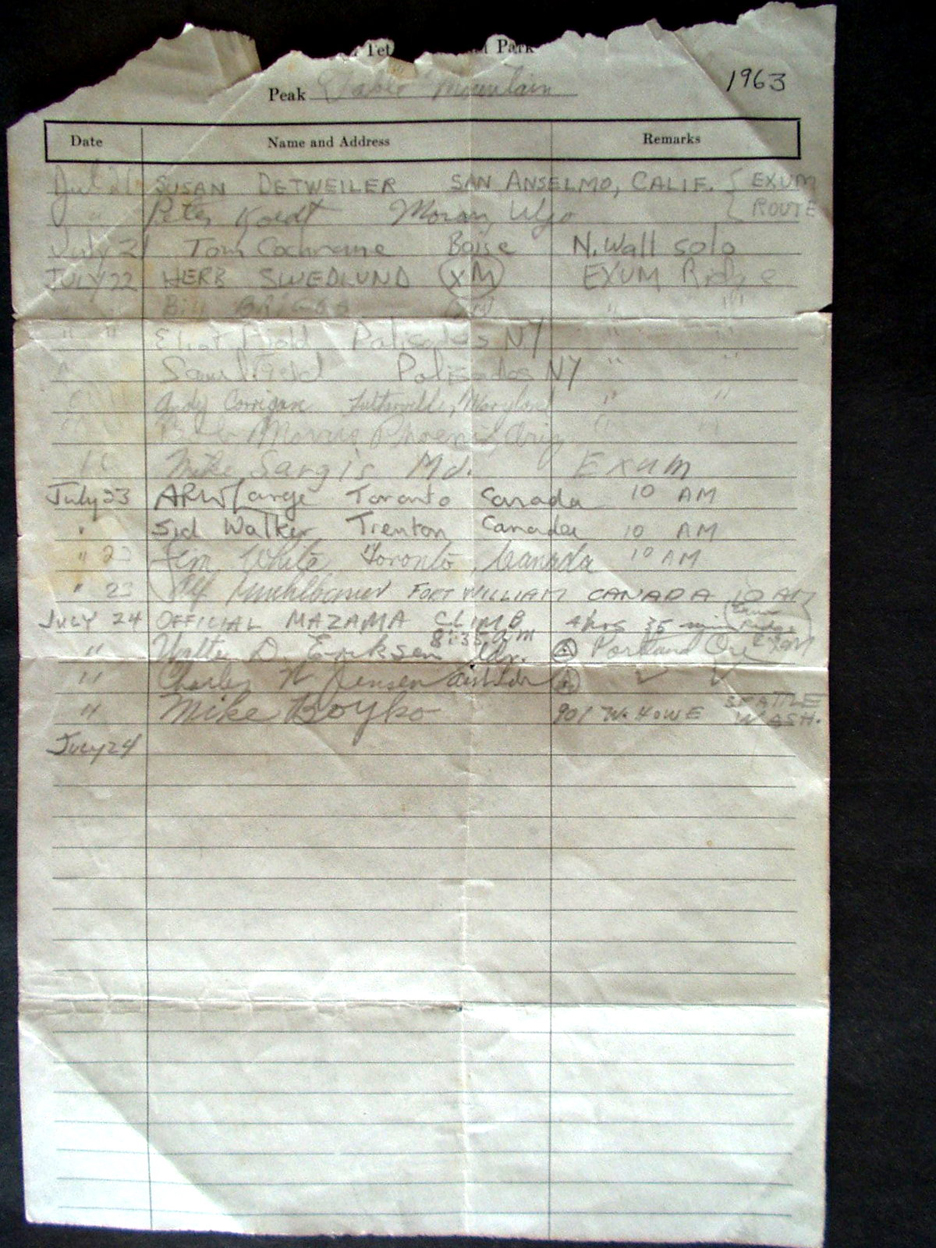 Tet Park
Peak Table Mountain 1963
Date Name and Address Remarks
Jul 21 SUSAN DETWEILER SAN ANSELMO, CALIF. { EXUM
" Pete Koedt Moran, Wyo { ROUTE
July 21 Tom Cochrane Boise N. Wall solo
JULY 22 HERB SWEDLUND XM EXUM Ridge
Bill BRIGGS " "
" " Eliot Field Palisades NY " "
Field Palisades NY " "
Andy Corrigan Lutherville, Maryland " "
Bob Morris Phoenix, Ariz " "
Mike Sargis Md. Exum
July 23 Toronto Canada 10 AM
" Sid Walker Trenton Canada 10 AM
" 23 Jim White Toronto, Canada 10 AM
" 23 FORT WILLIAM CANADA 10 AM
JULY 24 OFFICIAL MAZAMA CLIMB 4 hrs 35 min Exum Ridge
8:35 am
" Walter D. Eriksen Ldr. Portland Ore EXAM
" Charley N Jensen asst Ldr
" Mike Boyko 901 W. HOWE SEATTLE WASH.
July 24